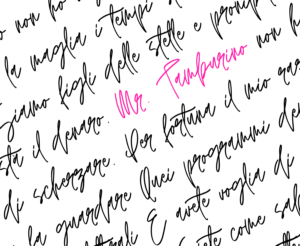 non ho
la maglia i tempi s
Siamo figli delle stelle e pronip
sta il denaro. Mr. Tamburino non h
di scherzare. Per fortuna il mio ra
la guardare Quei programmi de
E avete voglia di
come sa